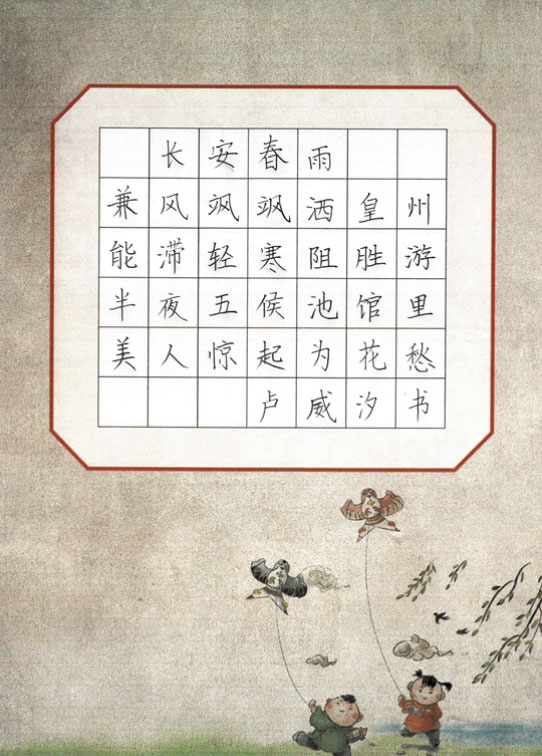 长安春雨
兼风飒飒洒皇州
能滞轻寒阻胜游
半夜五侯池馆里
美人惊起为花愁
卢威汐书